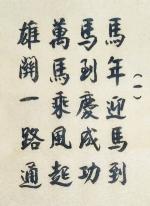 （一）
馬年迎馬到
馬到慶成功
萬馬乘風起
雄關一路通